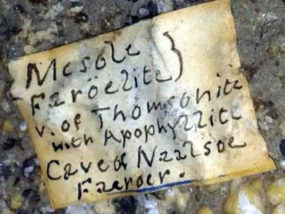 Mesole }
Färöelite }
v. of Thomsonite
with Apophyllite
Cave of Naalsoe
Faeroer.